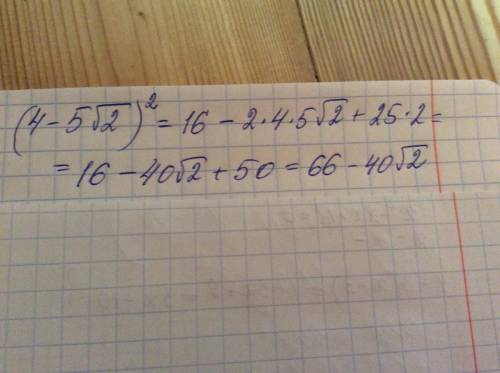 (4 - 5√2)² = 16 - 2·4·5√2 + 25·2 =
= 16 - 40√2 + 50 = 66 - 40√2